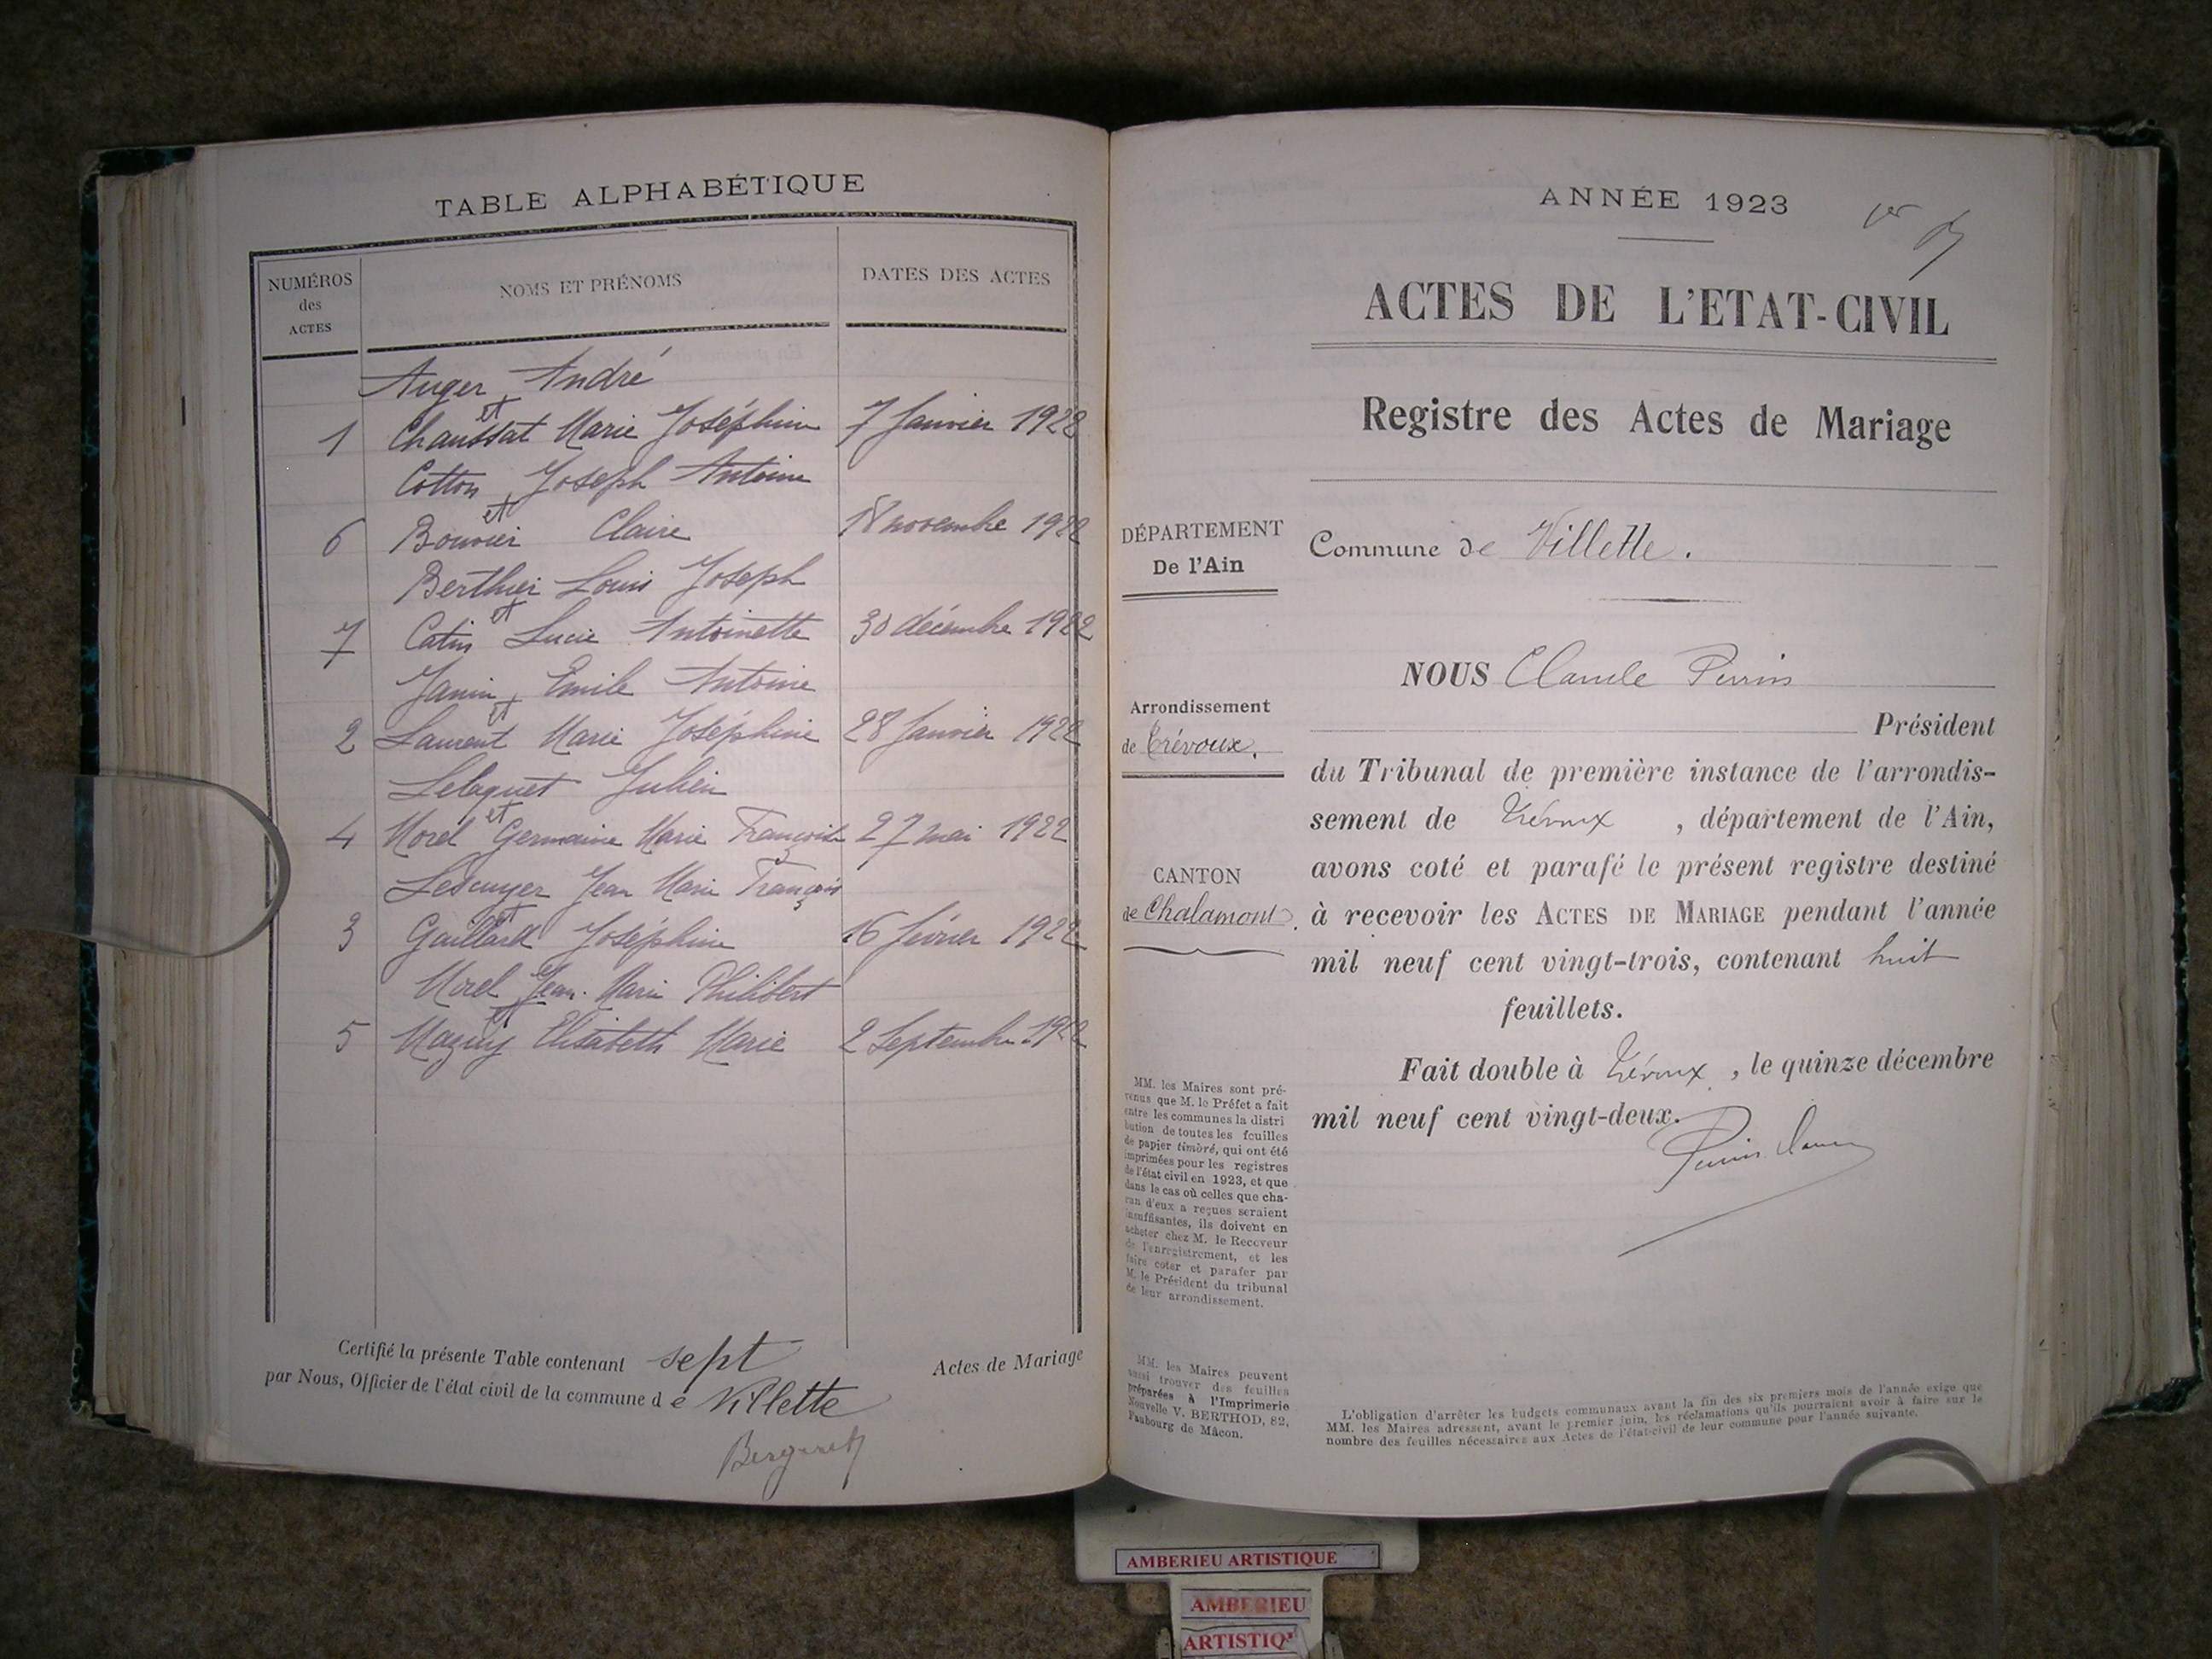 TABLE ALPHABÉTIQUE
NUMÉROS des ACTES
NOMS ET PRÉNOMS
DATES DES ACTES
Auger André
et
1 Chaussat Marie Joséphine 7 Janvier 1922
Cotton Joseph Antoine
et
6 Bouvier Claire 18 novembre 1922
Berthier Louis Joseph
et
7 Catin Lucie Antoinette 30 décembre 1922
Janin Emile Antoine
et
2 Laurent Marie Joséphine 28 Janvier 1922
Lelaquet Julien
et
4 Morel Germaine Marie Françoise 27 mai 1922
Lescuyer Jean Marie François
et
3 Gaillard Joséphine 16 février 1922
Morel Jean-Marie Philibert
et
5 Maguy Elisabeth Marie 2 Septembre 1922
Certifié la présente Table contenant sept Actes de Mariage
par Nous, Officier de l'état civil de la commune de Villette
ANNÉE 1923
ACTES DE L'ETAT-CIVIL
Registre des Actes de Mariage
DÉPARTEMENT
De l'Ain
Commune de Villette.
Arrondissement
de Trévoux.
CANTON
de Chalamont.
MM. les Maires sont pré-
venus que M. le Préfet a fait
entre les communes la distri
bution de toutes les feuilles
de papier timbré, qui ont été
imprimées pour les registres
de l'état civil en 1923, et que
dans le cas où celles que cha-
cun d'eux a reçues seraient
insuffisantes, ils doivent en
acheter chez M. le Receveur
de l'enregistrement, et les
faire coter et parafer par
M. le Président du tribunal
de leur arrondissement.
MM. les Maires peuvent
aussi trouver des feuilles
préparées à l'Imprimerie
Nouvelle V. BERTHOD, 82,
Faubourg de Mâcon.
NOUS Claude Perrin
Président
du Tribunal de première instance de l'arrondis-
sement de Trévoux, département de l'Ain,
avons coté et parafé le présent registre destiné
à recevoir les ACTES DE MARIAGE pendant l'année
mil neuf cent vingt-trois, contenant huit
feuillets.
Fait double à Trévoux, le quinze décembre
mil neuf cent vingt-deux.
L'obligation d'arrêter les budgets communaux avant la fin des six premiers mois de l'année exige que
MM. les Maires adressent, avant le premier juin, les réclamations qu'ils pourraient avoir à faire sur le
nombre des feuilles nécessaires aux Actes de l'état-civil de leur commune pour l'année suivante.
AMBERIEU ARTISTIQUE
AMBERIEU
ARTISTIQ